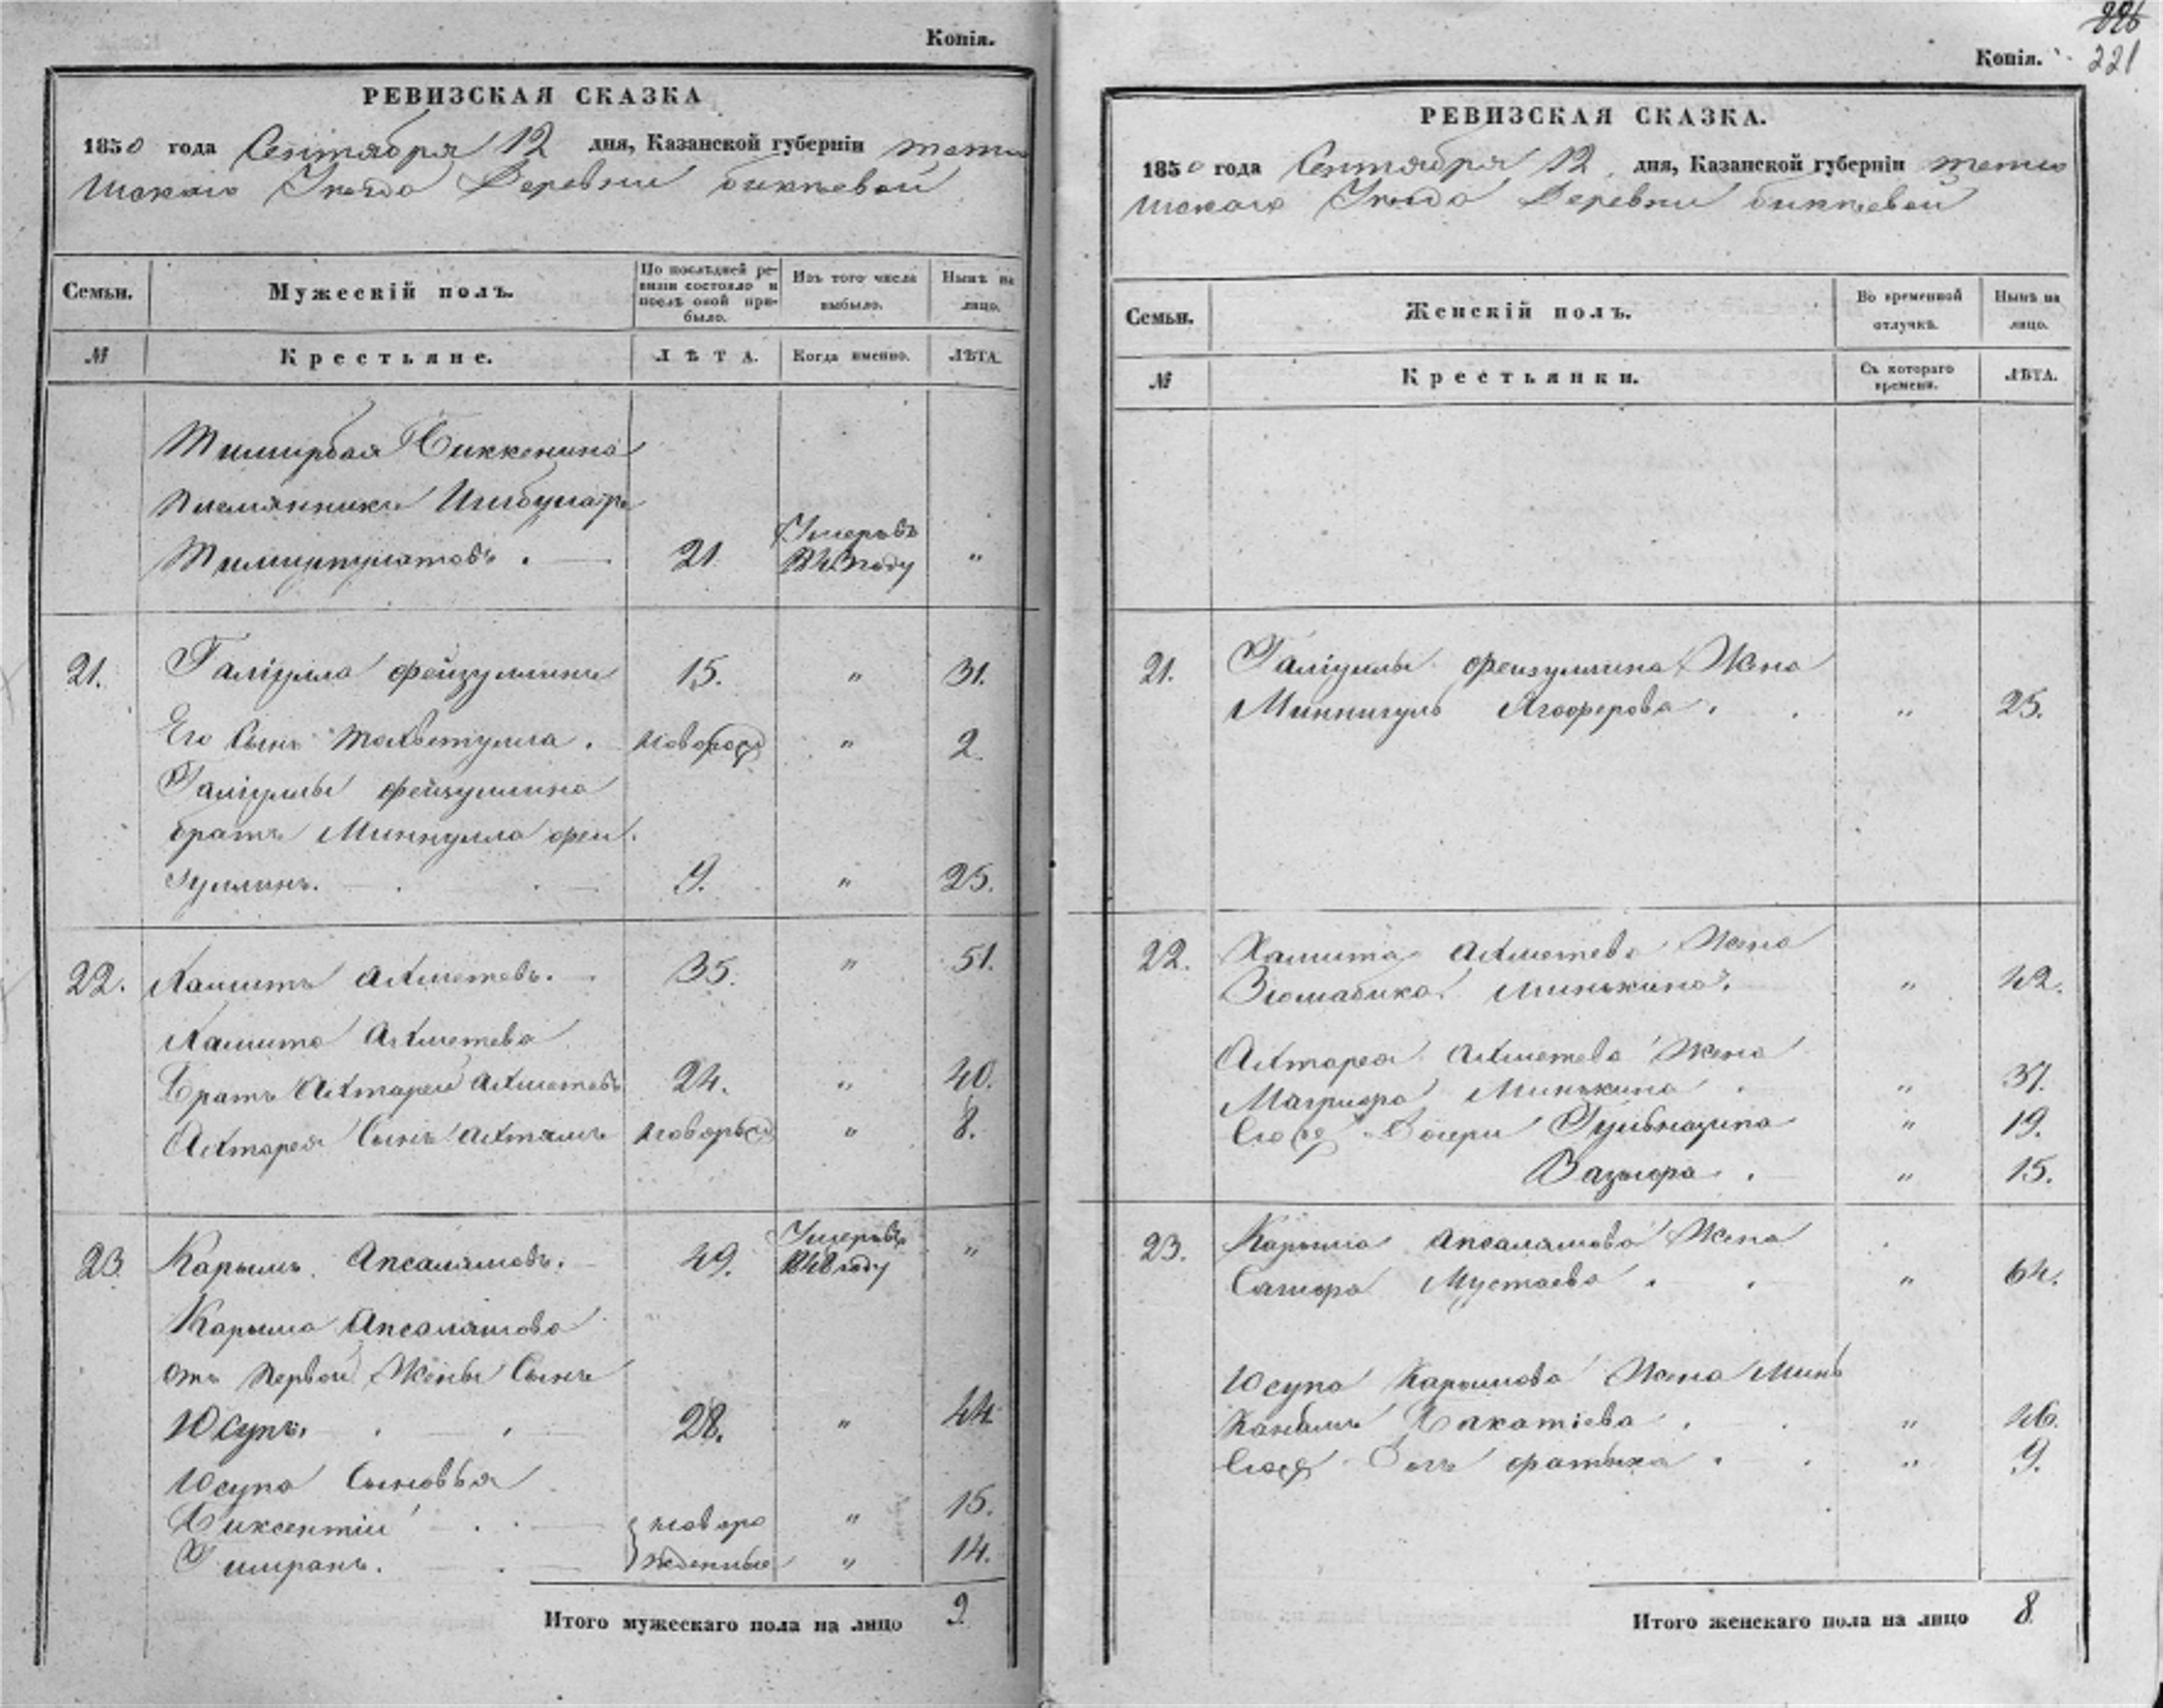 Копія.
РЕВИЗСКАЯ СКАЗКА
1850 года Сентября 12 дня, Казанской губерніи тетю
шскаго Уезда Деревни биктевой
Семьи.
Мужескій полъ.
По послѣдней ре-
визіи состояло и
послѣ оной при-
было.
Изъ того числа
выбыло.
Нынѣ на
лицо.
№
Крестьяне.
ЛѢТА.
Когда именно.
ЛѢТА.
Тимирбая Биккенина
племянникъ Ишбулатъ
Тимирпулатовъ . 21. Умеръ въ 1843 году "
21. Галіулла фейзуллинъ 15. " 31.
Его Сынъ новорож " 2.
Галіуллы фейзуллина
братъ Миннулла фей
зуллинъ. 9. " 25.
22. Хамитъ Ахметевъ. 35. " 51.
Хамита Ахметева
Братъ Ахтарей Ахметевъ 24. " 40.
Ахтарея Сынъ Ахтямъ новорож " 8.
23. Карымъ Апсалямовъ. 49. Умеръ въ 1848 году "
Карыма Апсалямова
отъ первой Жены Сынъ
Юсупъ. 28. " 44.
Юсупа Сыновья
Биксентій новоро " 15.
Гимранъ. жденные " 14.
Итого мужескаго пола на лицо 9
226
221
Копія.
РЕВИЗСКАЯ СКАЗКА.
1850 года Сентября 12 дня, Казанской губерніи тетю
шскаго Уезда Деревни биктевой
Семьи.
Женскій полъ.
Во временной
отлучкѣ.
Нынѣ на
лицо.
№
Крестьянки.
Съ котораго
времени.
ЛѢТА.
21. Галіуллы фейзуллина Жена
Миннигуль Ягоферова . " 25.
22. Хамита Ахметева Жена
Зюмабика Минькина. " 42.
Ахтарея Ахметева Жена
Магрифа Минькина . " 37.
Дочери Гульназипа " 19.
Вазифа . " 15.
23. Карыма Апсалямова Жена
Сагифа Мустаева . " 64.
Юсупа Карымова Жена Минь
Бакатіева . " 46.
Дочь фатыха . " 9.
Итого женскаго пола на лицо 8